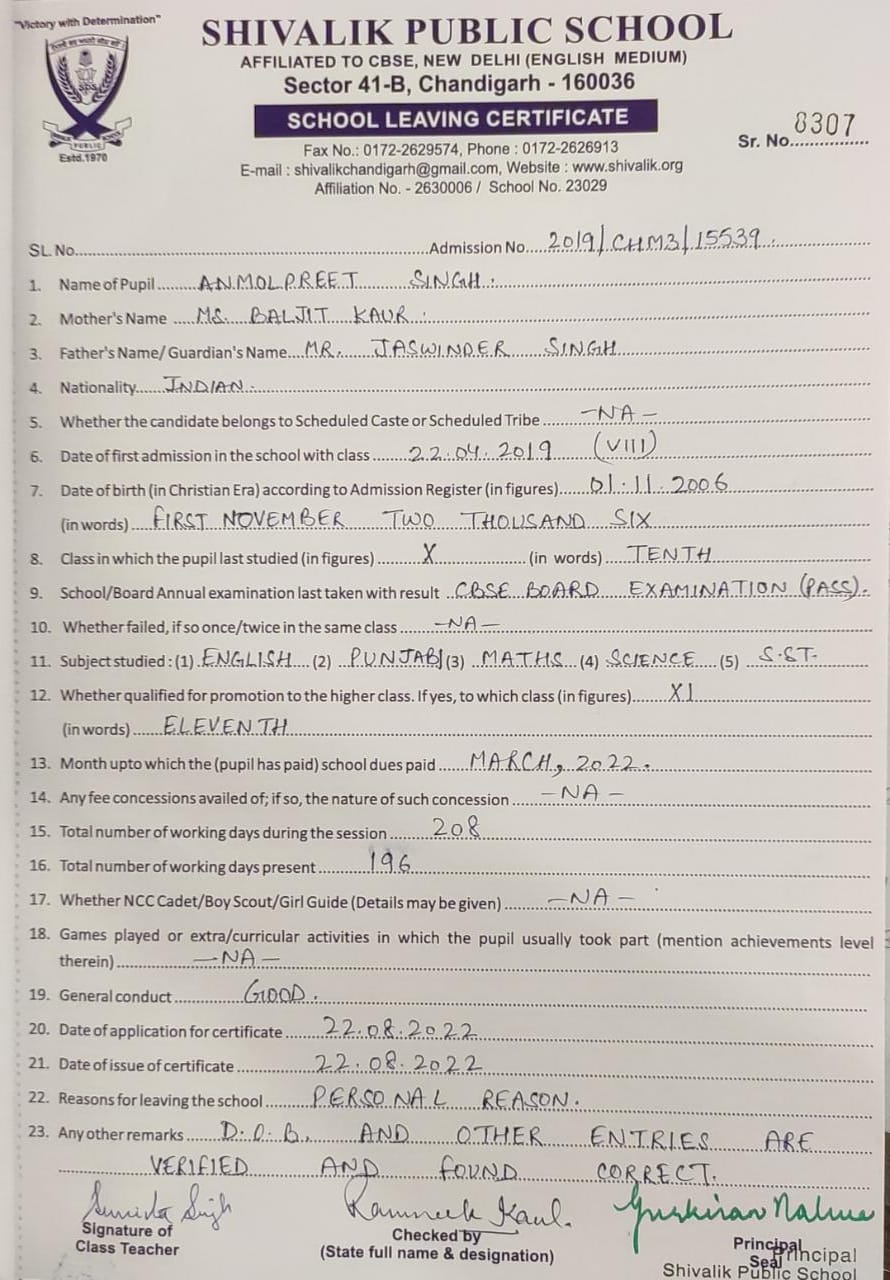 "Victory with Determination"
SHIVALIK PUBLIC SCHOOL
AFFILIATED TO CBSE, NEW DELHI (ENGLISH MEDIUM)
Sector 41-B, Chandigarh - 160036
SCHOOL LEAVING CERTIFICATE
SPS
PUBLIC
Estd.1970
Sr. No. 8307
Fax No.: 0172-2629574, Phone : 0172-2626913
E-mail : shivalikchandigarh@gmail.com, Website : www.shivalik.org
Affiliation No. - 2630006 / School No. 23029
SL. No. Admission No. 2019/CHM3/15539.
1. Name of Pupil ANMOLPREET SINGH.
2. Mother's Name MS. BALJIT KAUR.
3. Father's Name/ Guardian's Name MR. JASWINDER SINGH
4. Nationality INDIAN.
5. Whether the candidate belongs to Scheduled Caste or Scheduled Tribe -NA-
6. Date of first admission in the school with class 22.04.2019 (VIII)
7. Date of birth (in Christian Era) according to Admission Register (in figures) 01.11.2006
(in words) FIRST NOVEMBER TWO THOUSAND SIX
8. Class in which the pupil last studied (in figures) X (in words) TENTH
9. School/Board Annual examination last taken with result CBSE BOARD EXAMINATION (PASS).
10. Whether failed, if so once/twice in the same class -NA-
11. Subject studied : (1) ENGLISH (2) PUNJABI (3) MATHS (4) SCIENCE (5) S.ST.
12. Whether qualified for promotion to the higher class. If yes, to which class (in figures) XI
(in words) ELEVENTH
13. Month upto which the (pupil has paid) school dues paid MARCH, 2022.
14. Any fee concessions availed of; if so, the nature of such concession -NA-
15. Total number of working days during the session 208
16. Total number of working days present 196
17. Whether NCC Cadet/Boy Scout/Girl Guide (Details may be given) -NA-
18. Games played or extra/curricular activities in which the pupil usually took part (mention achievements level
therein) -NA-
19. General conduct GOOD.
20. Date of application for certificate 22.08.2022
21. Date of issue of certificate 22.08.2022
22. Reasons for leaving the school PERSONAL REASON.
23. Any other remarks D.O.B. AND OTHER ENTRIES ARE
VERIFIED AND FOUND CORRECT.
Singh Ramneek Kaul. Gurkiran
Signature of
Class Teacher
Checked by
(State full name & designation)
Principal
Seal
Principal
Shivalik Public School